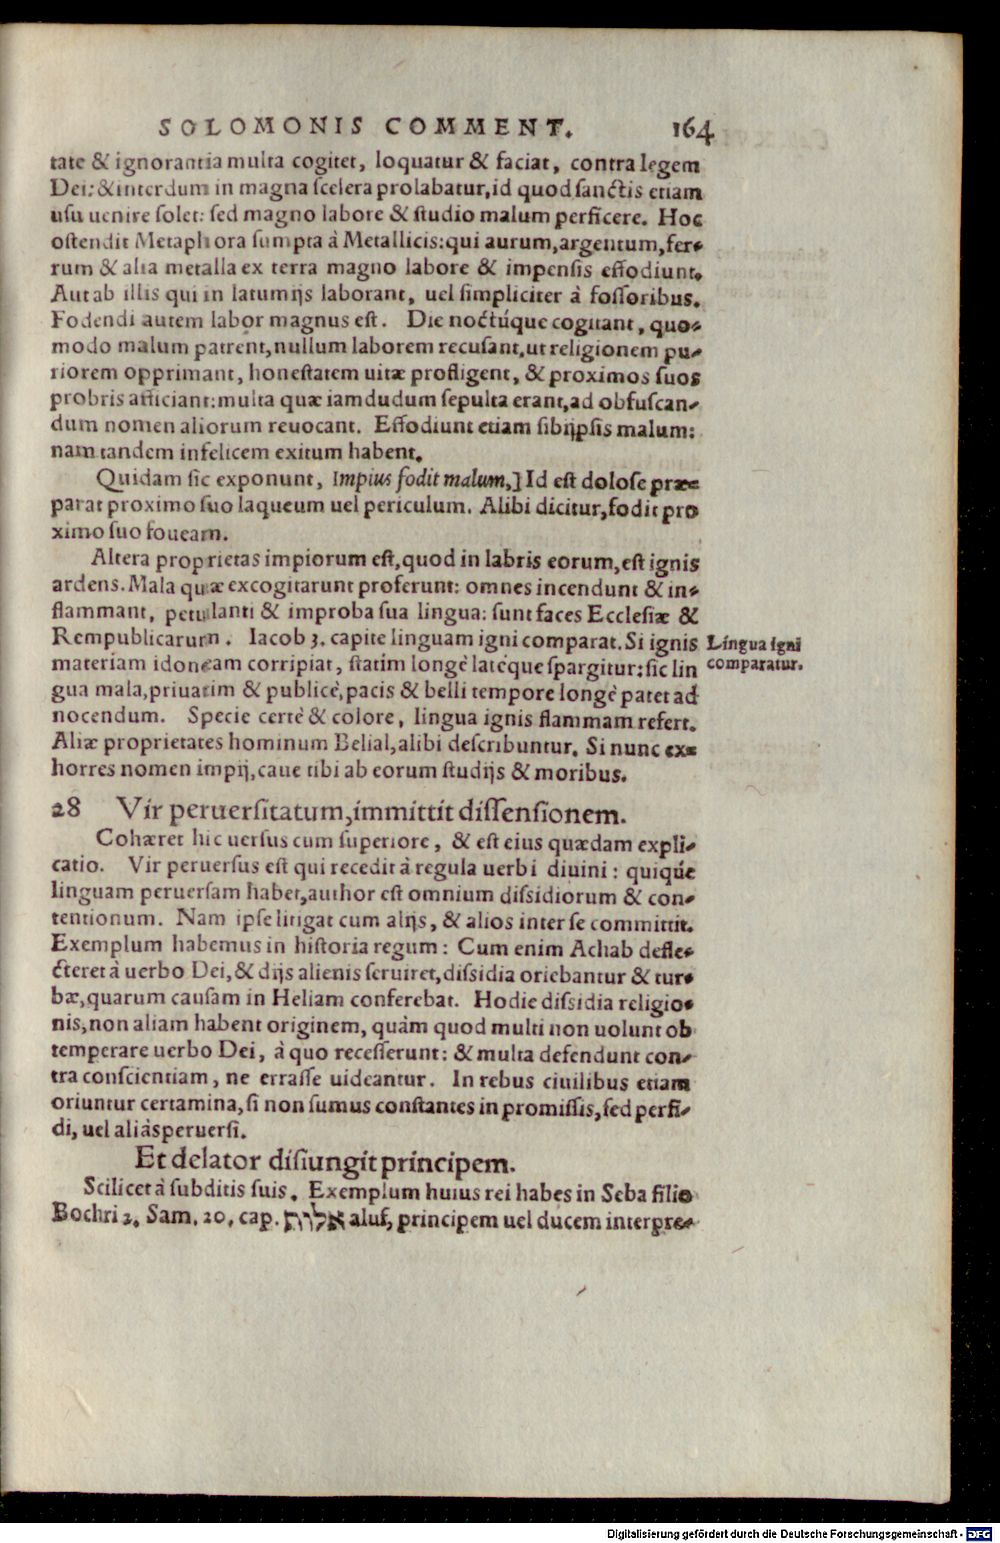 SOLOMONIS COMMENT. 164
tate & ignorantia multa cogitet, loquatur & faciat, contra legem
Dei: & interdum in magna scelera prolabatur, id quod sanctis etiam
usu uenire solet: sed magno labore & studio malum perficere. Hoc
ostendit Metaphora sumpta à Metallicis: qui aurum, argentum, fer-
rum & alia metalla ex terra magno labore & impensis effodiunt.
Aut ab illis qui in latumijs laborant, uel simpliciter à fossoribus.
Fodendi autem labor magnus est. Die noctúque cogitant, quo-
modo malum patrent, nullum laborem recusant, ut religionem pu-
riorem opprimant, honestatem uitæ profligent, & proximos suos
probris afficiant: multa quæ iamdudum sepulta erant, ad obfuscan-
dum nomen aliorum reuocant. Effodiunt etiam sibijpsis malum:
nam tandem infelicem exitum habent.
Quidam sic exponunt, Impius fodit malum,] Id est dolose præ-
parat proximo suo laqueum uel periculum. Alibi dicitur, fodit pro
ximo suo foueam.
Altera proprietas impiorum est, quod in labris eorum, est ignis
ardens. Mala quæ excogitarunt proferunt: omnes incendunt & in-
flammant, petulanti & improba sua lingua: sunt faces Ecclesiæ &
Rempublicarum. Iacob 3. capite linguam igni comparat. Si ignis
Lingua igni
materiam idoneam corripiat, statim longè latéque spargitur: sic lin
comparatur.
gua mala, priuatim & publicè, pacis & belli tempore longè patet ad
nocendum. Specie certè & colore, lingua ignis flammam refert.
Aliæ proprietates hominum Belial, alibi describuntur. Si nunc ex-
horres nomen impij, caue tibi ab eorum studijs & moribus.
28 Vir peruersitatum, immittit dissensionem.
Cohæret hic uersus cum superiore, & est eius quædam expli-
catio. Vir peruersus est qui recedit à regula uerbi diuini: quiqúe
linguam peruersam habet, author est omnium dissidiorum & con-
tentionum. Nam ipse litigat cum alijs, & alios inter se committit.
Exemplum habemus in historia regum: Cum enim Achab defle-
cteret à uerbo Dei, & dijs alienis seruiret, dissidia oriebantur & tur-
bæ, quarum causam in Heliam conferebat. Hodie dissidia religio-
nis, non aliam habent originem, quàm quod multi non uolunt ob
temperare uerbo Dei, à quo recesserunt: & multa defendunt con-
tra conscientiam, ne errasse uideantur. In rebus ciuilibus etiam
oriuntur certamina, si non sumus constantes in promissis, sed perfi-
di, uel aliàs peruersi.
Et delator disiungit principem.
Scilicet à subditis suis. Exemplum huius rei habes in Seba filio
Bochri 2. Sam. 20. cap. aluf, principem uel ducem interpre-
Digitalisierung gefördert durch die Deutsche Forschungsgemeinschaft - DFG